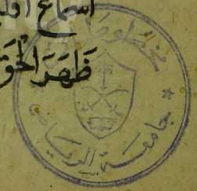 اسماع
ظهر الحق
مخطوطات
جامعة الرياض